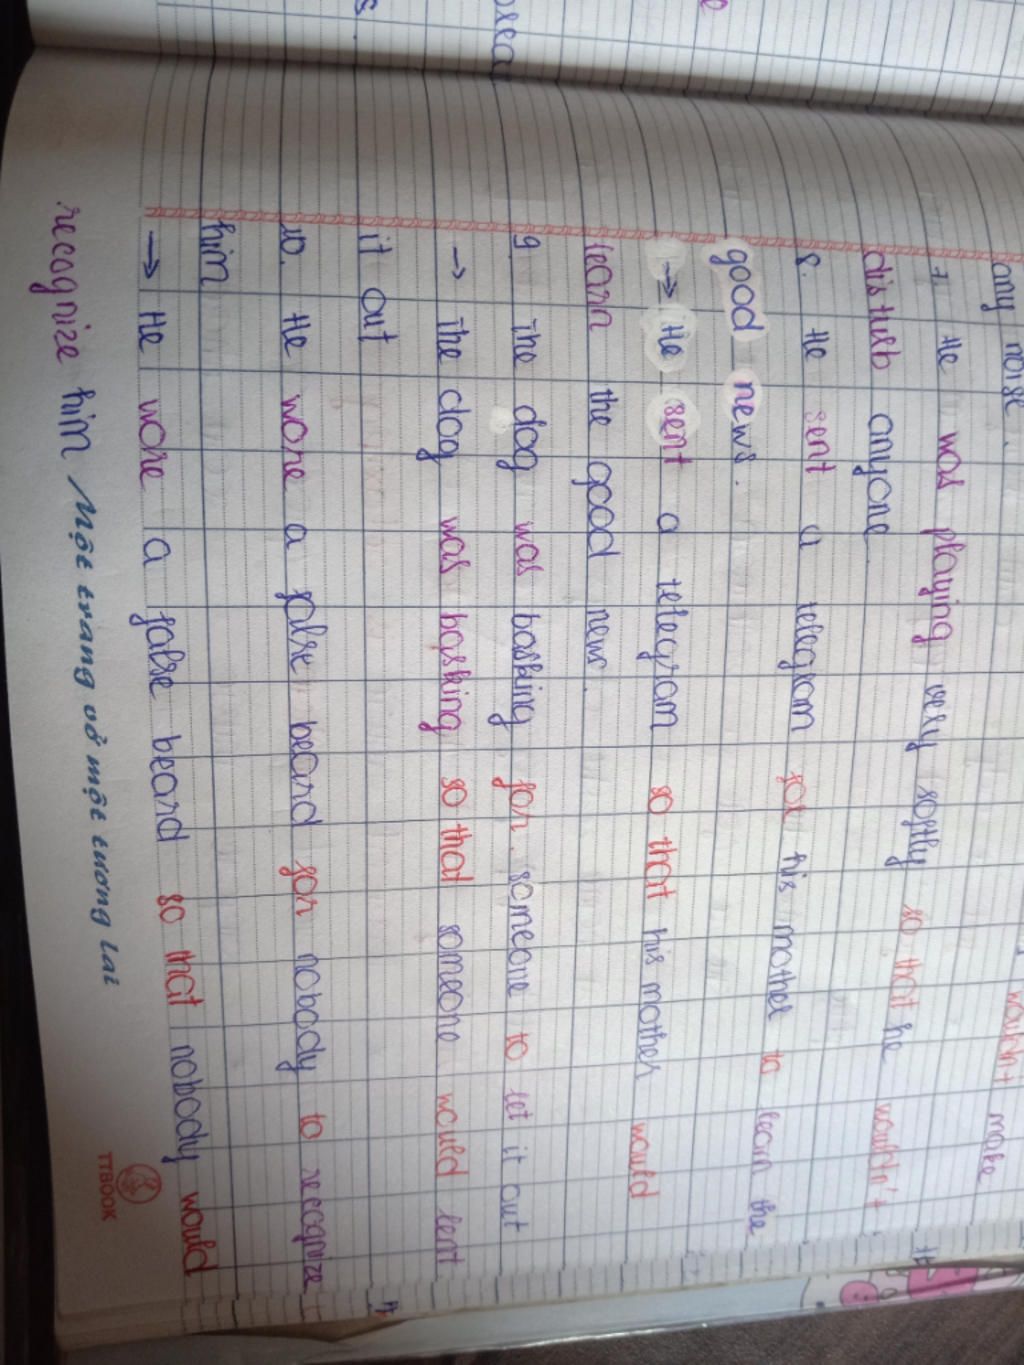 any noise.
wouldn't make
7. He was playing very softly so that he wouldn't
disturb anyone
8. He sent a telegram for his mother to learn the
good news.
→ He sent a telegram so that his mother would
learn the good news.
9. The dog was basking for someone to let it out
→ The dog was basking so that someone would lent
it out
10. He wore a false beard for nobody to recognize
him
→ He wore a false beard so that nobody would
recognize him
Một trang vở một tương lai
TTBOOK